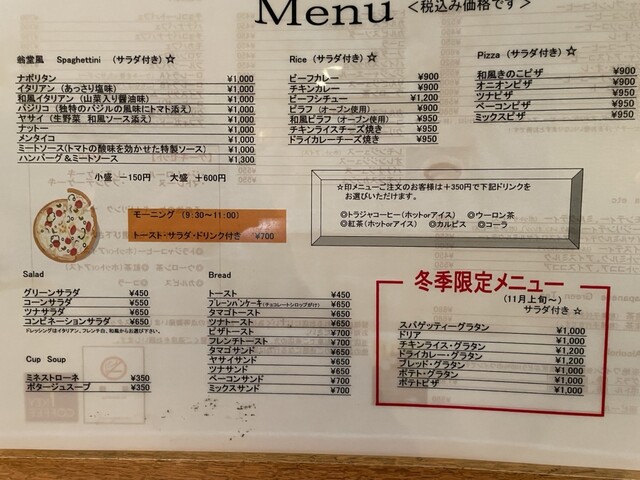 Menu <税込み価格です>
翁堂風 Spaghettini (サラダ付き) ☆
ナポリタン ¥1,000
イタリアン (あっさり塩味) ¥1,000
和風イタリアン (山菜入り醤油味) ¥1,000
バジリコ (独特のバジルの風味にトマト添え) ¥1,000
ヤサイ (生野菜 和風ソース添え) ¥1,000
ナットー ¥1,000
メンタイコ ¥1,000
ミートソース(トマトの酸味を効かせた特製ソース) ¥1,000
ハンバーグ&ミートソース ¥1,300
小盛 -150円 大盛 +600円
Rice (サラダ付き) ☆
ビーフカレー ¥900
チキンカレー ¥900
ビーフシチュー ¥1,200
ピラフ (オーブン使用) ¥900
和風ピラフ (オーブン使用) ¥950
チキンライスチーズ焼き ¥950
ドライカレーチーズ焼き ¥950
Pizza (サラダ付き) ☆
和風きのこピザ ¥900
オニオンピザ ¥900
ツナピザ ¥950
ベーコンピザ ¥950
ミックスピザ ¥950
モーニング (9:30~11:00)
トースト・サラダ・ドリンク付き ¥700
☆印メニューご注文のお客様は+350円で下記ドリンクを
お選びいただけます。
◎トラジャコーヒー(ホットorアイス) ◎ウーロン茶
◎紅茶(ホットorアイス) ◎カルピス ◎コーラ
Salad
グリーンサラダ ¥450
コーンサラダ ¥550
ツナサラダ ¥650
コンビネーションサラダ ¥650
ドレッシングはイタリアン、フレンチ白、和風からお選び下さい。
Cup Soup
ミネストローネ ¥350
ポタージュスープ ¥350
Bread
トースト ¥450
プレーンパンケーキ(チョコレートシロップがけ) ¥650
タマゴトースト ¥650
ツナトースト ¥650
ピザトースト ¥700
フレンチトースト ¥700
タマゴサンド ¥650
ヤサイサンド ¥650
ツナサンド ¥650
ベーコンサンド ¥700
ミックスサンド ¥700
冬季限定メニュー
(11月上旬~)
サラダ付き ☆
スパゲッティーグラタン ¥1,000
ドリア ¥1,000
チキンライス・グラタン ¥1,200
ドライカレー・グラタン ¥1,200
ブレッド・グラタン ¥1,000
ポテト・グラタン ¥1,000
ポテトピザ ¥1,000